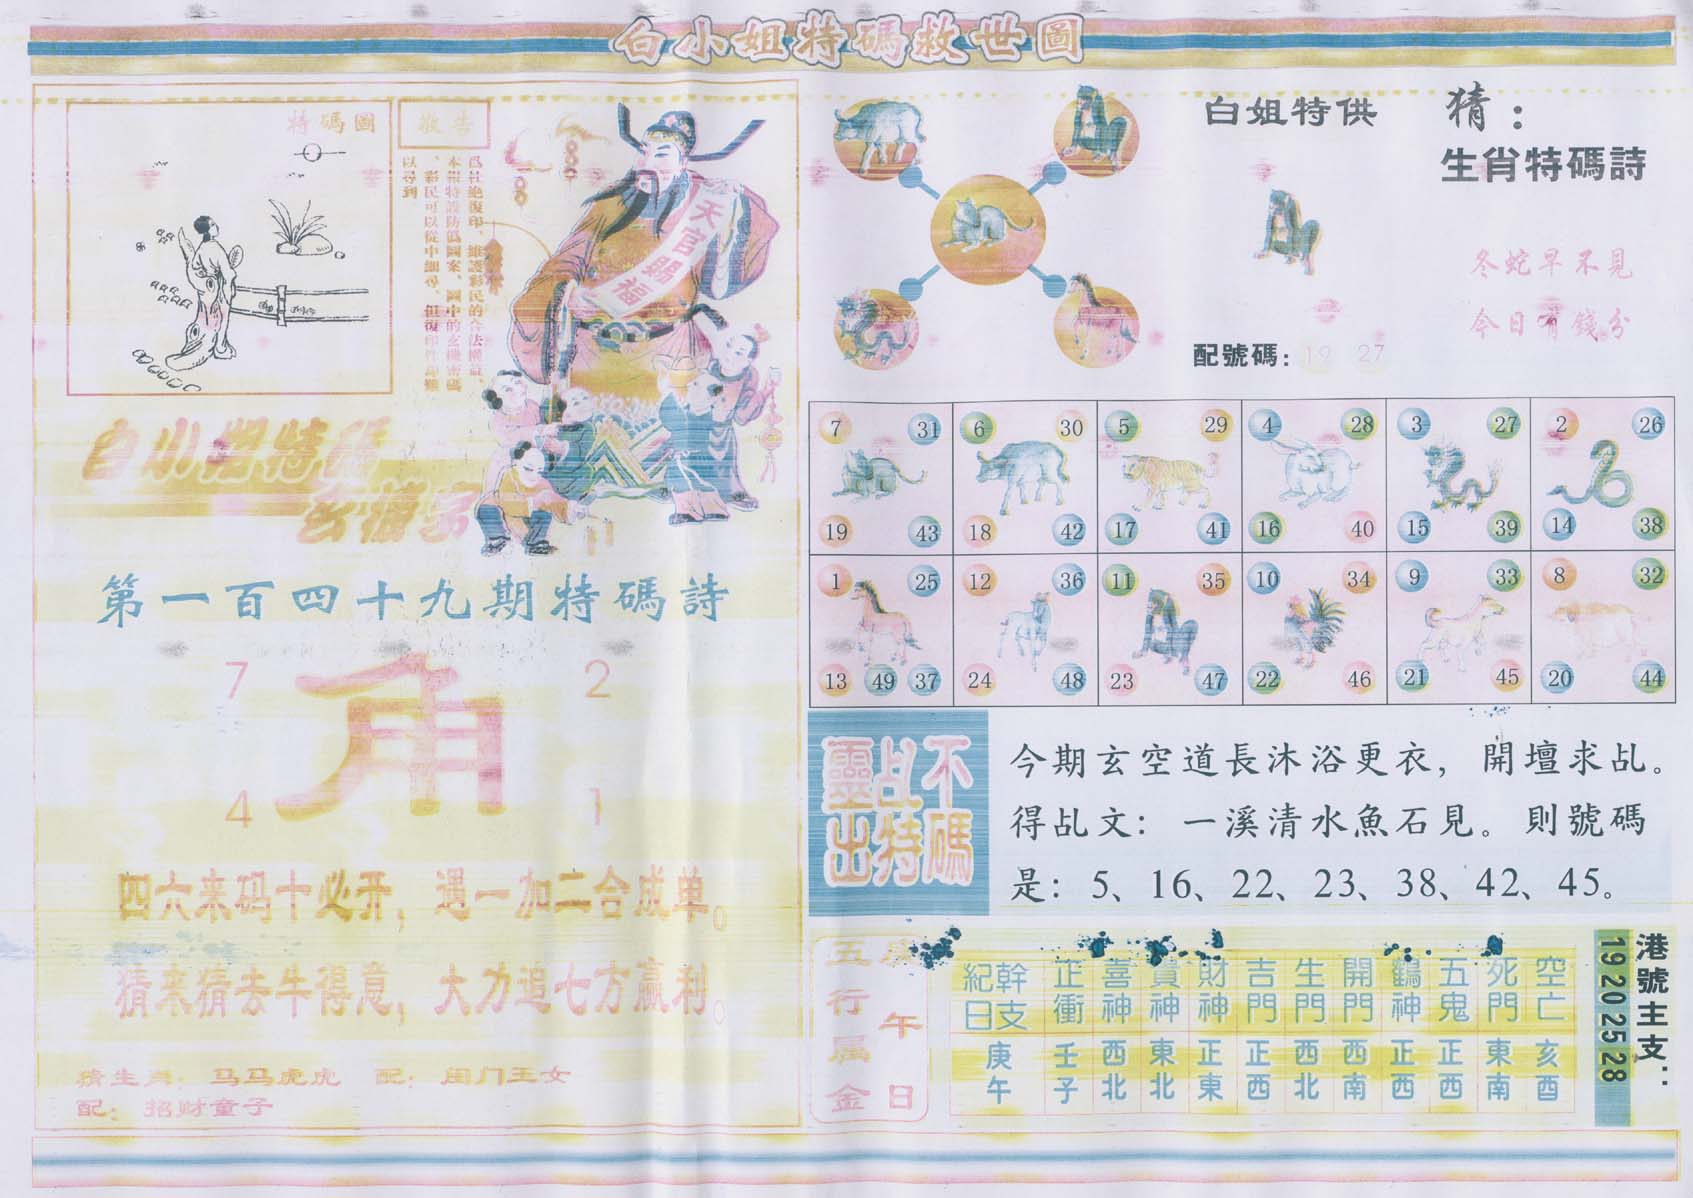 白小姐特碼救世圖
特碼圖
敬告
爲杜絶復印、維護彩民的合法權益、
本報特設防僞圖案、圖中的玄機密碼
、彩民可以從中細尋、但復印件即難
以尋到
天官賜福
白小姐特碼
玄機字
第一百四十九期特碼詩
角
7 2
4 1
四六来码十必开，遇一加二合成单。
猜来猜去牛得意，大力追七方赢利。
猜生肖：马马虎虎 配：闺门玉女
配：招财童子
白姐特供
配號碼：19 27
猜：
生肖特碼詩
冬蛇早不見
今日有錢分
7 31 6 30 5 29 4 28 3 27 2 26
19 43 18 42 17 41 16 40 15 39 14 38
1 25 12 36 11 35 10 34 9 33 8 32
13 49 37 24 48 23 47 22 46 21 45 20 44
不碼
乩特
靈出
今期玄空道長沐浴更衣，開壇求乩。
得乩文：一溪清水魚石見。則號碼
是：5、16、22、23、38、42、45。
五行属金
庚午日
紀日 幹支 正衝 喜神 貴神 財神 吉門 生門 開門 鶴神 五鬼 死門 空亡
庚午 壬子 西北 東北 正東 正西 西北 西南 正西 正西 東南 亥酉
港號主支：
19 20 25 28